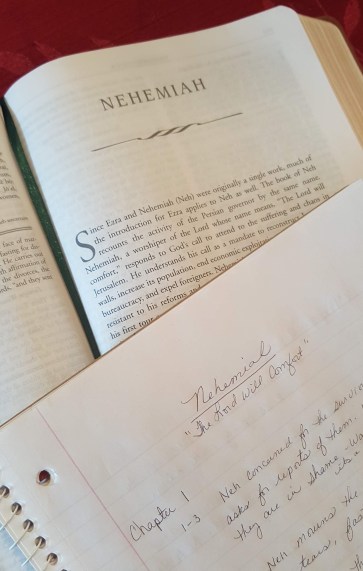 NEHEMIAH
Since Ezra and Nehemiah (Neh) were originally a single work, much of
the introduction for Ezra applies to Neh as well. The book of Neh
recounts the activity of the Persian governor by the same name.
Nehemiah, a worshiper of the Lord whose name means "The Lord will
comfort," responds to God's call to attend to the suffering and chaos in
Jerusalem. He understands his call as a mandate to reconstruct
walls, increase its population, end economic
bureaucracy, and expel foreigners.
resistant to his reforms
his first
Nehemiah
"The Lord Will Comfort"
Chapter 1
1-3 Neh concerned for the
asks for reports of them.
they are in shame
Neh mourns the
tears,